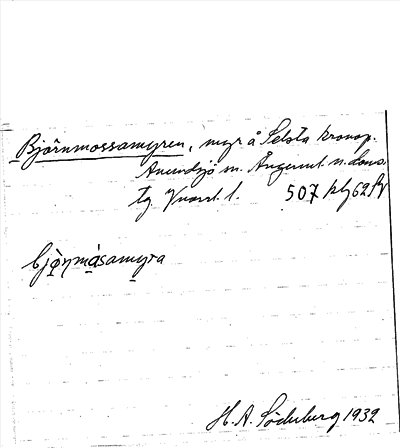 Björnmossamyren, myr å Selsta kronop.
Anundsjö sn. Ångerml. n. doms.
tg. Vnorrl. l. 507 62
bjọ̀ṇmásamyra
H. A. Söderberg 1932